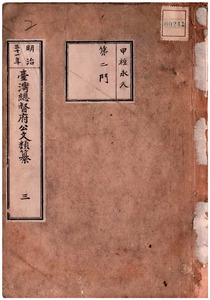 甲種永久
第二門
明治
三十一年
臺灣總督府公文類纂
三